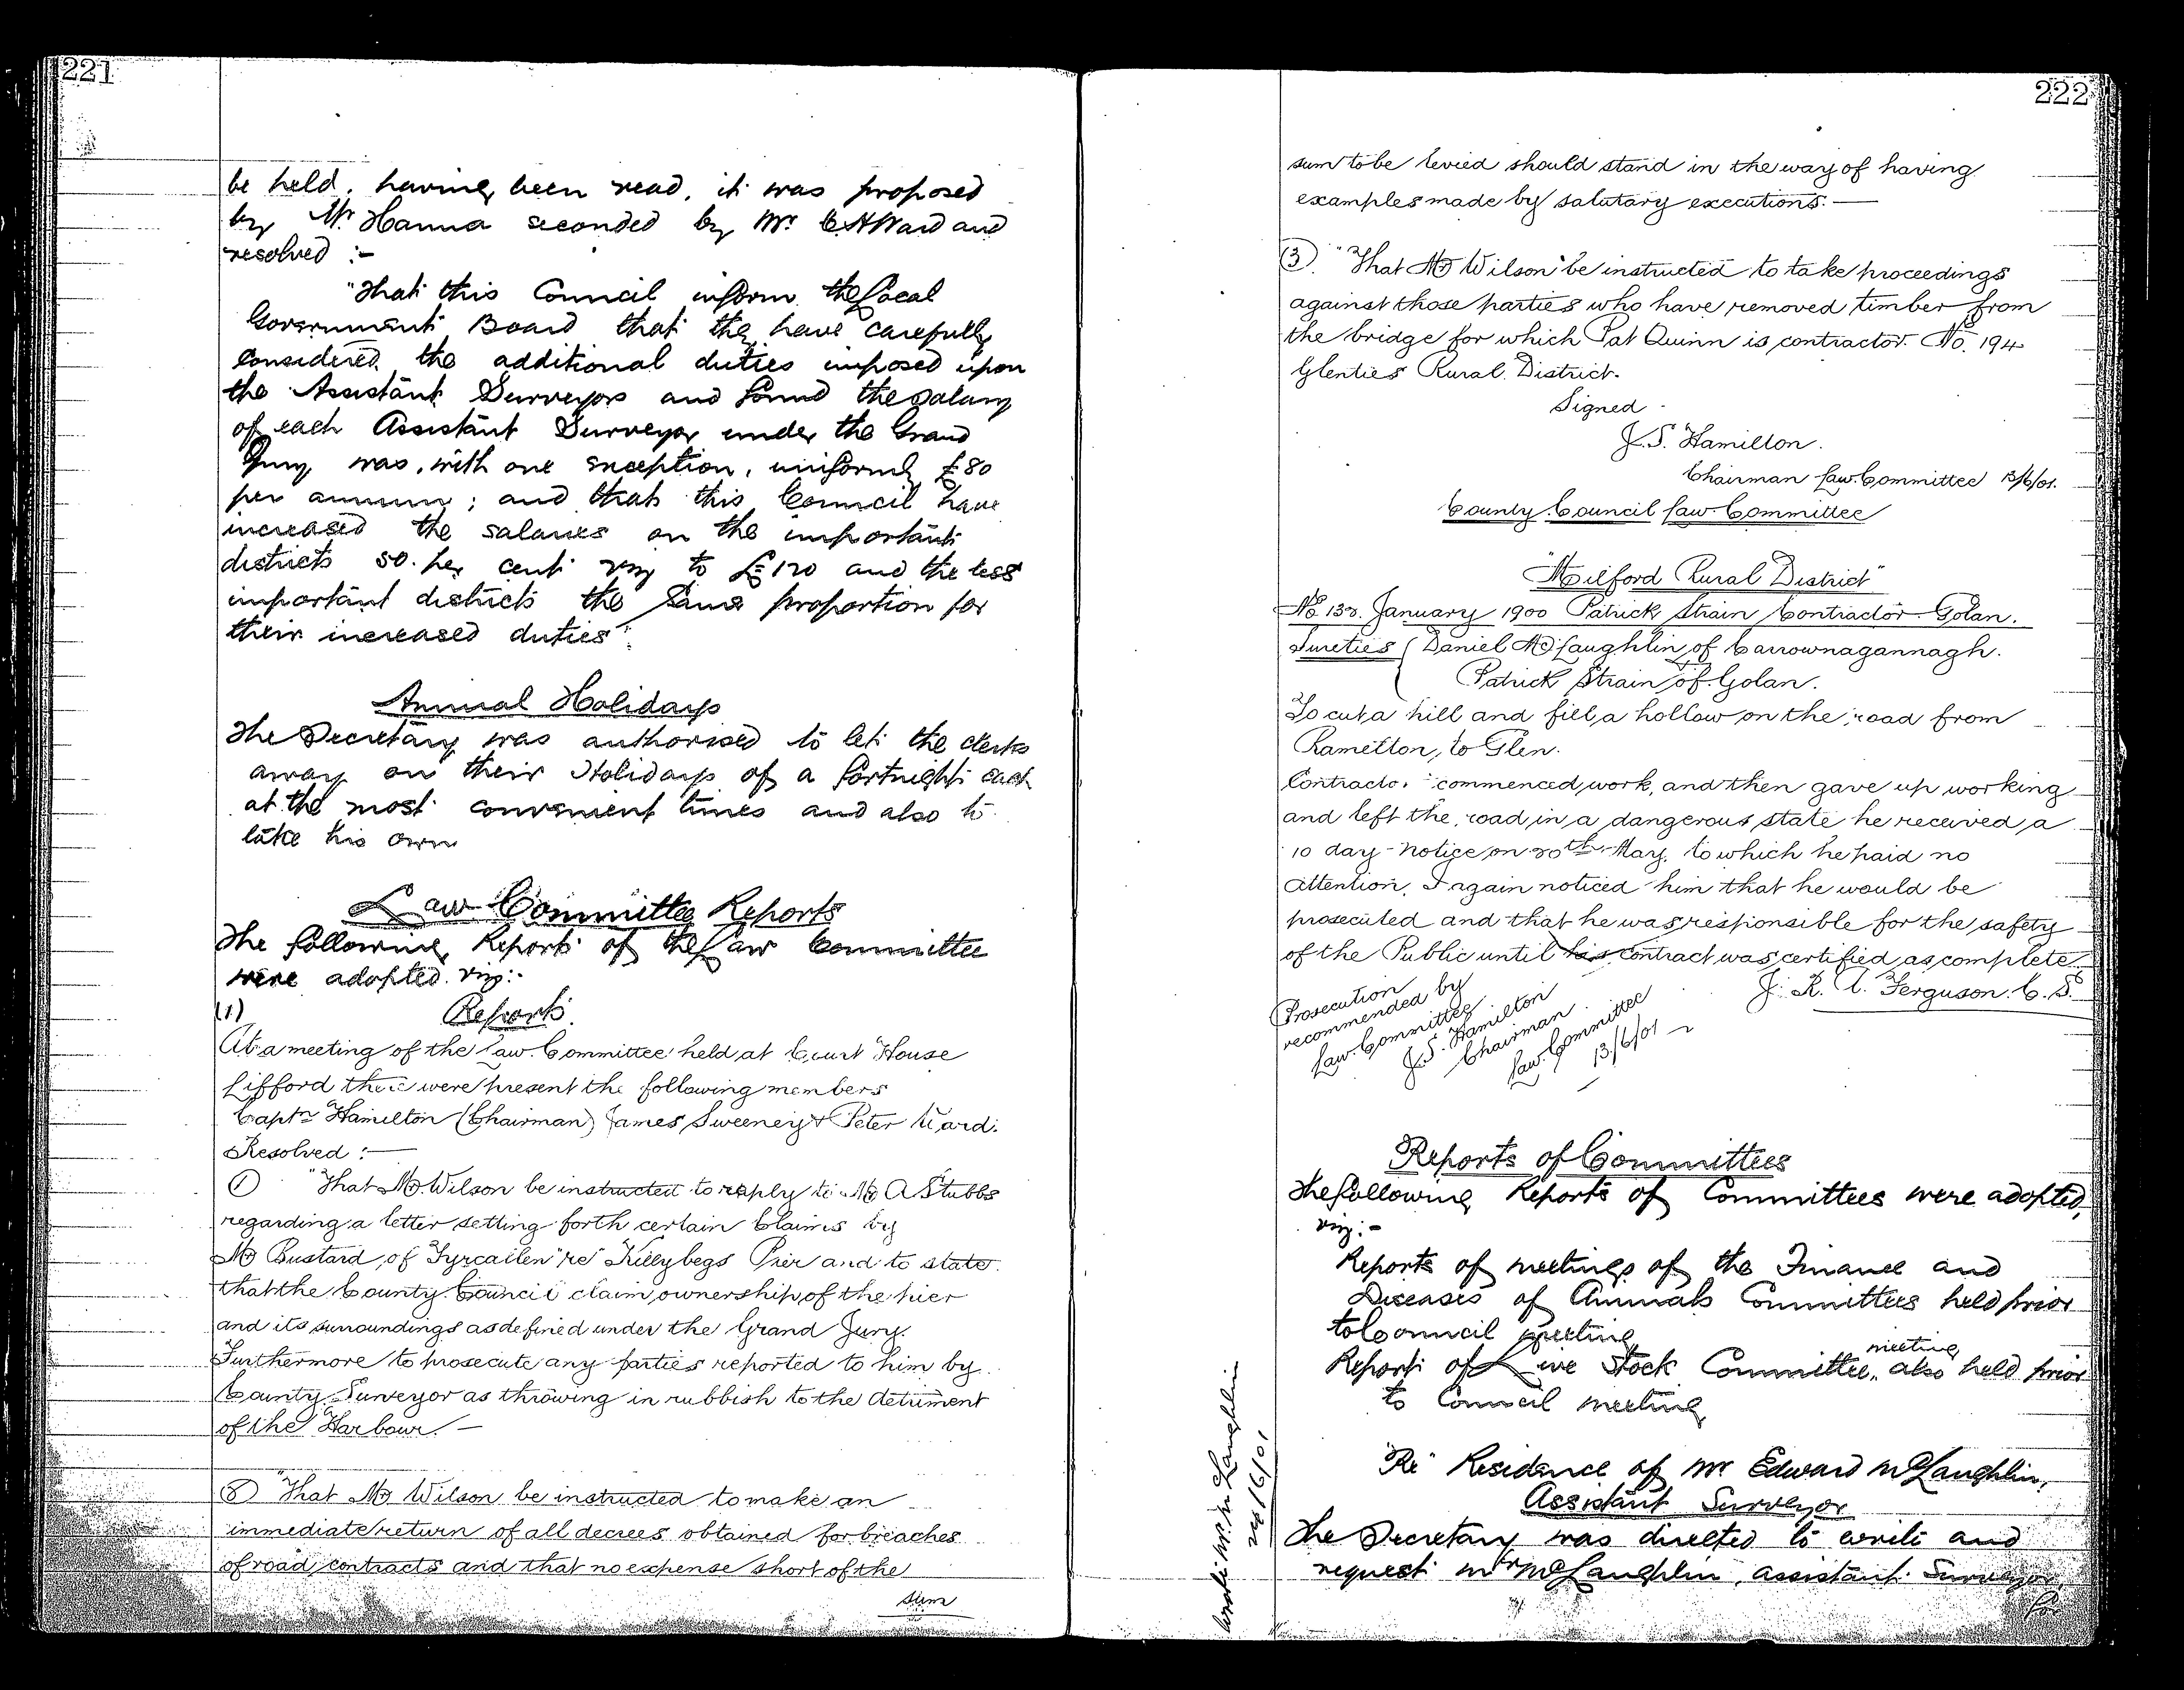 221
be held. having been read, it was proposed
by Mr. Hanna seconded by Mr. C. A Ward and
resolved :-
"That this Council inform the Local
Government Board that they have carefully
considered the additional duties imposed upon
the Assistant Surveyors and found the salary
of each Assistant Surveyor under the Grand
Jury was, with one exception, uniformly £80
per annum; and that this Council have
increased the salaries on the important
districts 50. per cent viz to £120 and the less
important districts the same proportion for
their increased duties".
Annual Holidays
The Secretary was authorised to let the clerks
away on their Holidays of a fortnight each
at the most convenient times and also to
take his own
Law Committee Reports
The following Reports of the Law Committee
were adopted. viz:-
(1) Report.
At a meeting of the Law Committee held at Court House
Lifford there were present the following members
Captn Hamilton (Chairman) James Sweeney & Peter Ward.
Resolved :—
① "That Mr Wilson be instructed to reply to Mr A Stubbs
regarding a letter setting forth certain Claims by
Mr Bustard, of Fyrcallen "re" Killybegs Pier and to state
that the County Council claim ownership of the pier
and its surroundings as defined under the Grand Jury.
Furthermore to prosecute any parties reported to him by
County Surveyor as throwing in rubbish to the detriment
of the Harbour. —
② "That Mr Wilson be instructed to make an
immediate return of all decrees obtained for breaches
of road contracts and that no expense short of the
sum
222
sum to be levied should stand in the way of having
examples made by salutary executions. —
③. "That Mr Wilson be instructed to take proceedings
against those parties who have removed timber from
the bridge for which Pat Quinn is contractor. No. 194
Glenties Rural District.
Signed
J. S. Hamilton.
Chairman Law Committee 13/6/01.
County Council Law Committee
"Milford Rural District"
January 1900 Patrick Strain Contractor Golan.
Sureties { Daniel McLaughlin of Carrownagannagh.
Patrick Strain of Golan.
To cut a hill and fill a hollow on the road from
Ramelton, to Glen.
Contractor commenced work, and then gave up working
and left the road in a dangerous state he received a
10 day notice on 20th May, to which he paid no
attention. I again noticed him that he would be
prosecuted and that he was responsible for the safety
of the Public until his contract was certified as complete
J. R. A. Ferguson. C. S.
Prosecution
recommended by
Law Committee
J. S. Hamilton
Chairman
Law Committee
13/6/01
Reports of Committees
The following Reports of Committees were adopted,
viz:-
Reports of meetings of the Finance and
Diseases of Animals Committees held prior
to Council meeting
Report of Live Stock Committee meeting also held prior
to Council meeting
Wrote Mr. McLaughlin
"Re" Residence of Mr Edward McLaughlin,
Assistant Surveyor
The Secretary was directed to write and
request Mr McLaughlin, assistant Surveyor,
for